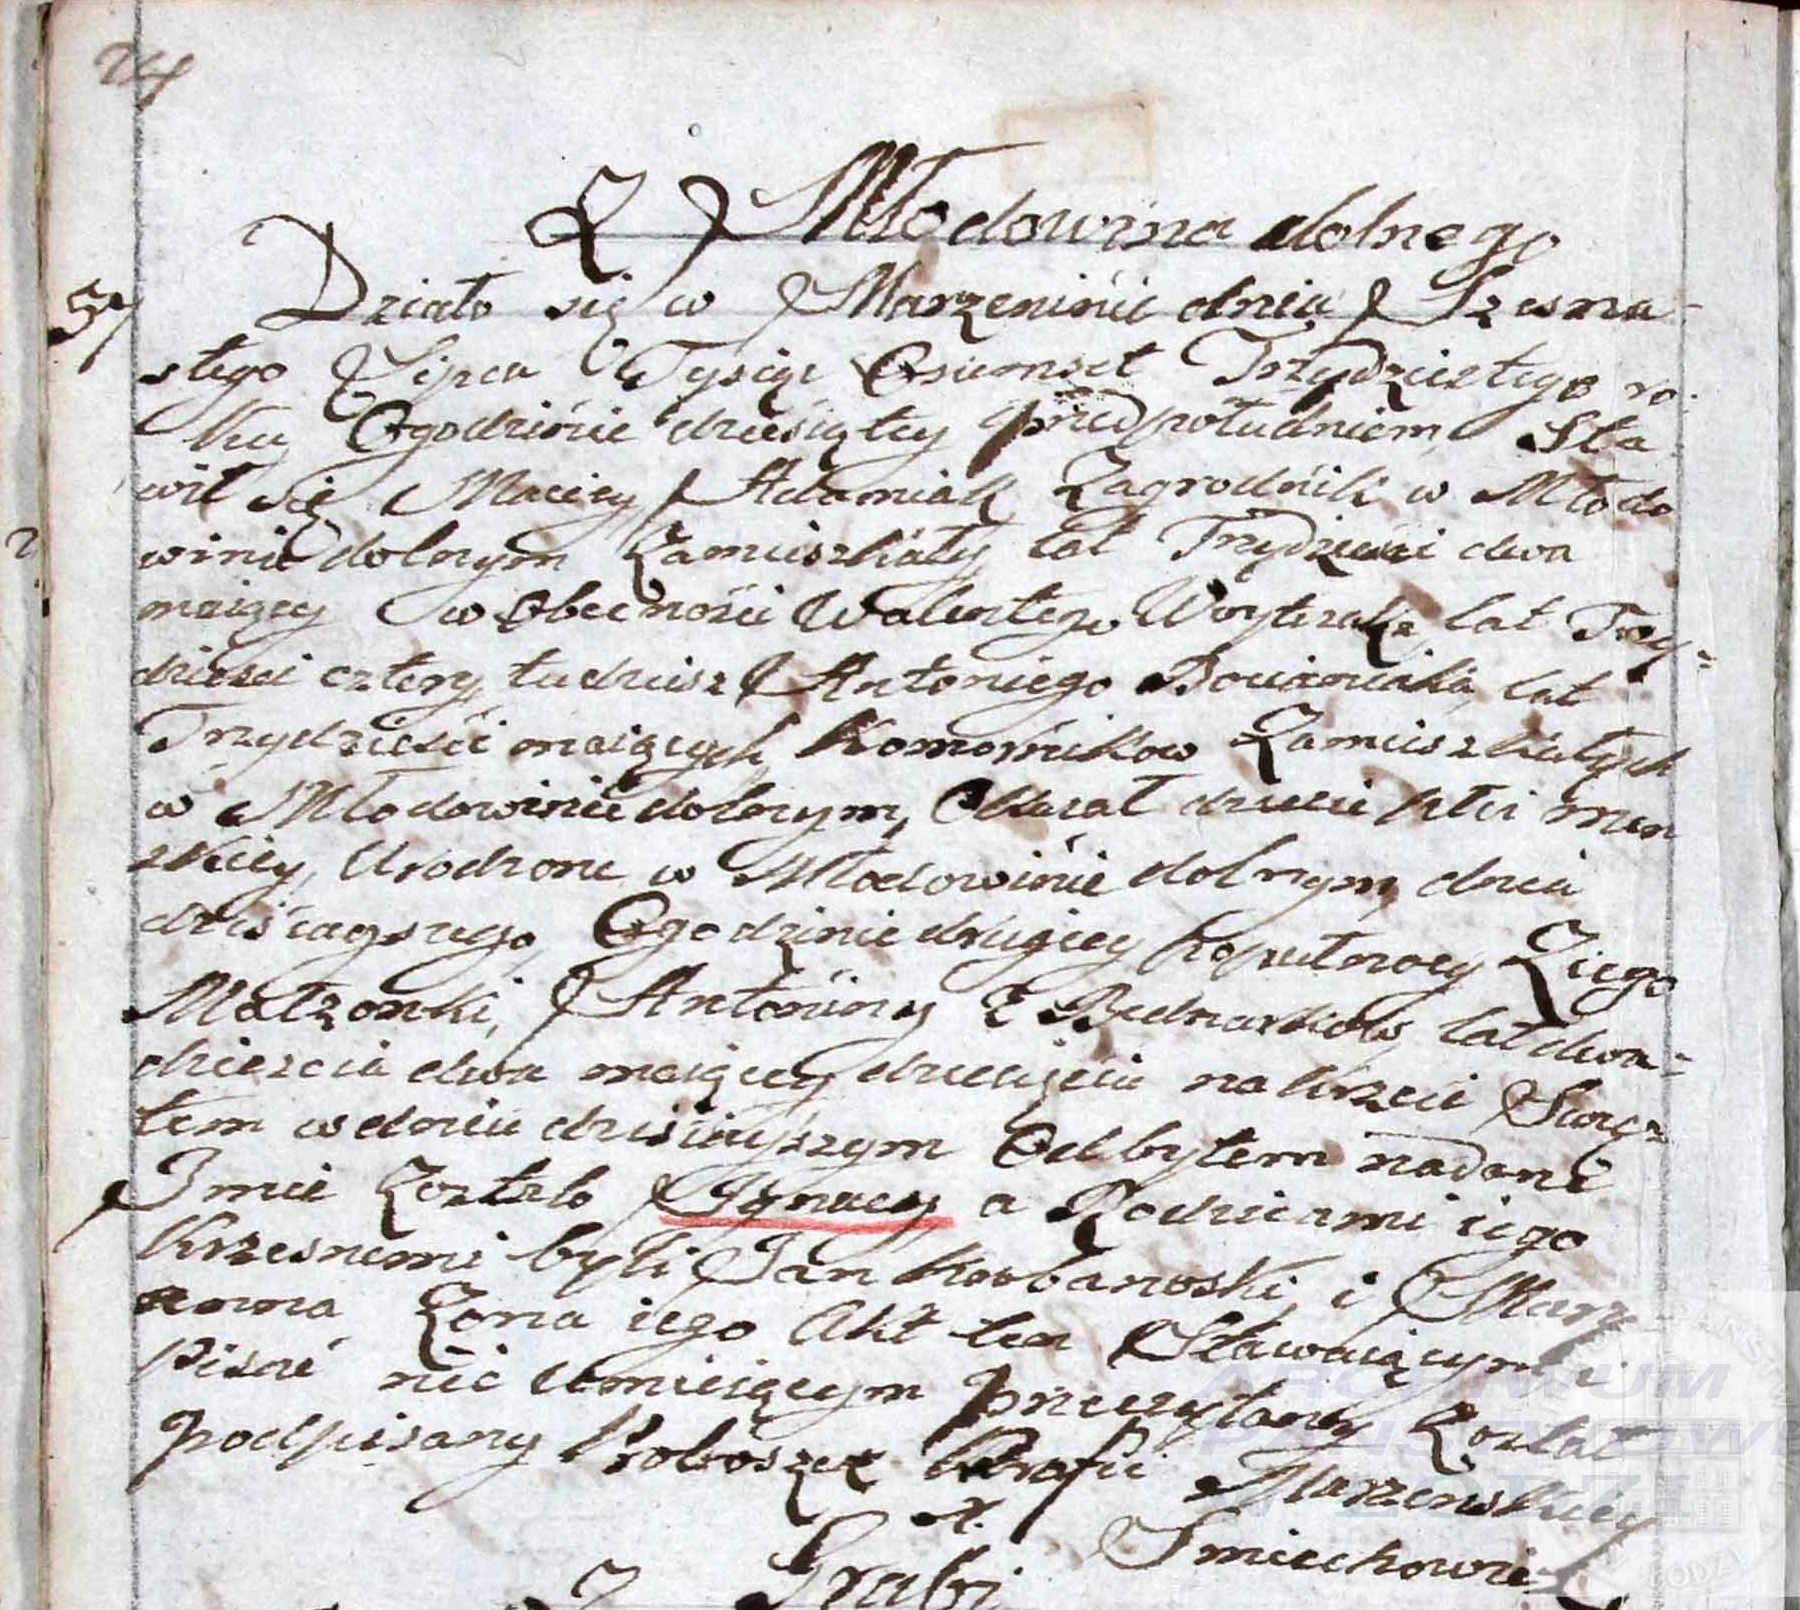 24
Z Młodowina dolnego
57
Działo się w Marzeninie dnia Szesna-
stego Lipca Tysiąc Osiemset Trzydziestego ro-
ku Ogodzinie dziesiątey przedpołudniem Sta
wił się Maciey Adamiak Zagrodnik w Młodo
winie dolnym Zamieszkały lat Trzydzieści dwa
maiący w Obecności Walentego Woytczaka lat Trzy=
dzieści cztery tudziesz Antoniego Bocianiaka lat
Trzydzieści maiących Komorników Zamieszkałych
w Młodowinie dolnym, Okazał dziecie płci męn
skiey, Urodzone w Młodowinie dolnym dnia
dzisiayszego, Ogodzinie drugiey popułnocy Ziego
Małżonki, Antoniny z Bednarków lat dwa=
dzieścia dwa maiącey dziecięciu na krzcie Swię=
tem wdniu dzisieyszym Odbytem nadane
Imie Zostało Ignacy a Rodzicami iego
Krzesnemi byli Jan Korbanoski i Mary
anna Żona iego Akt ten Stawaiącym i
Pisać nie Umieiącym przeczytany Został
podpisany Proboszcz Parafii Marzenskiey
X. Smiechowicz
Z Grabi
ARCHIWUM
PAŃSTWOWE
W ŁODZI